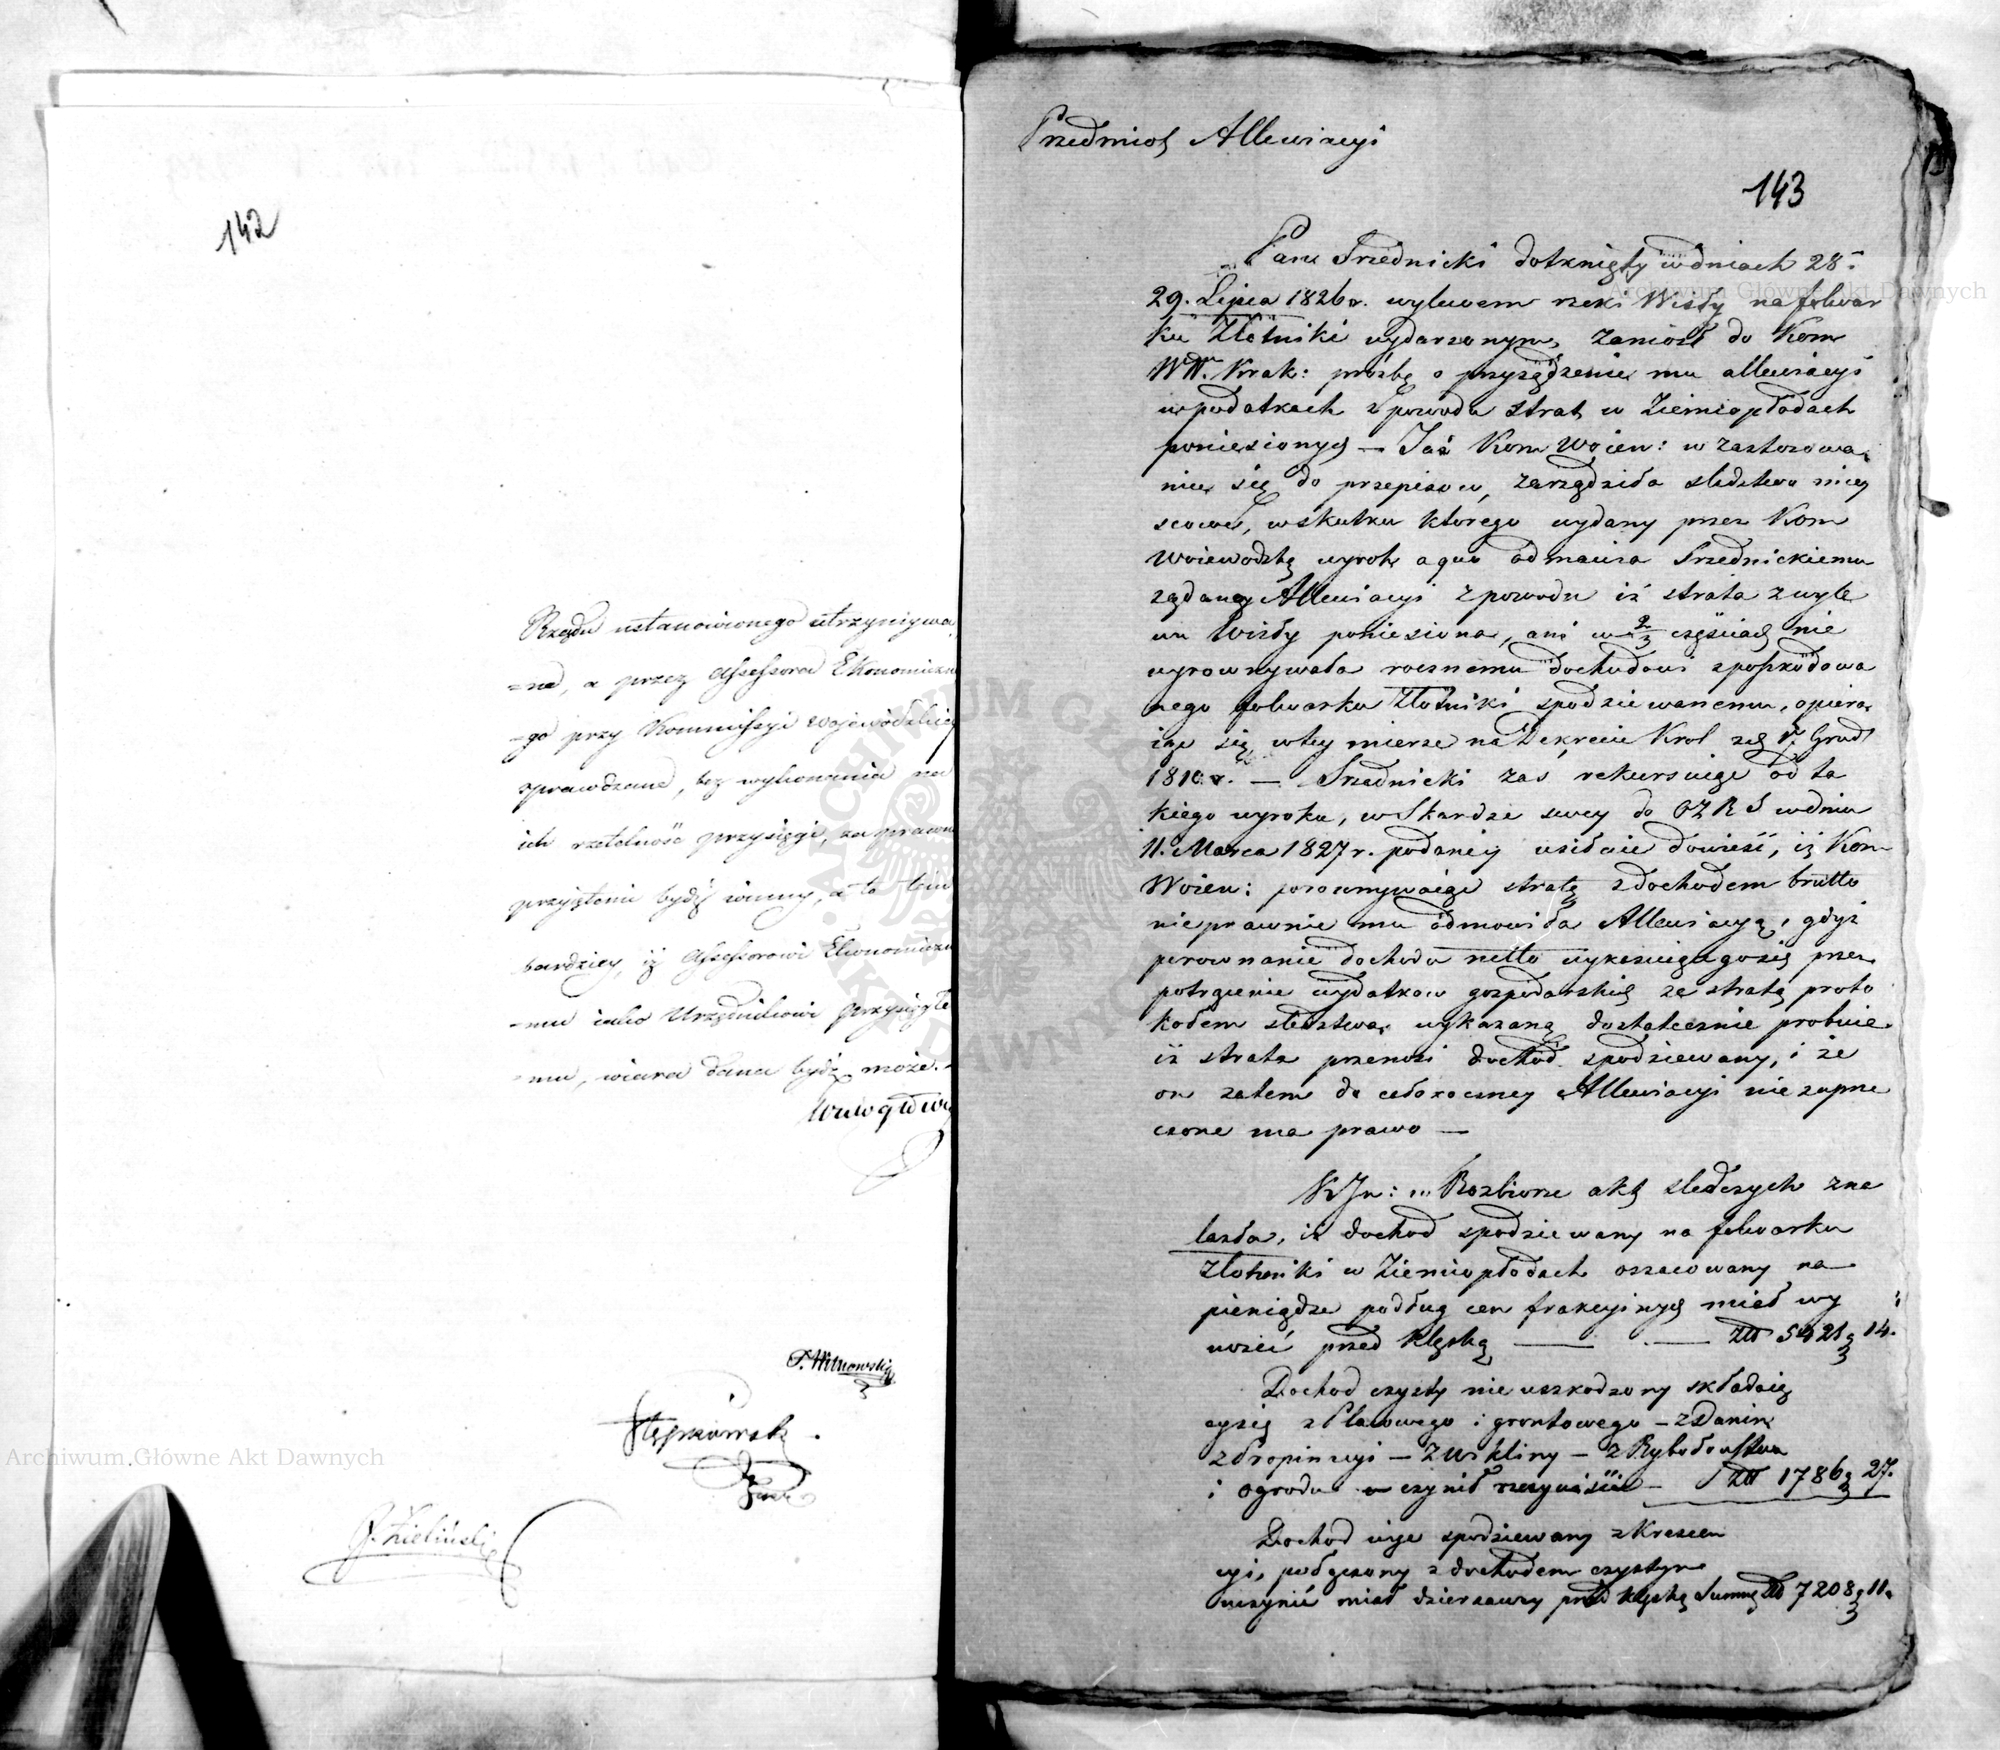 142
Rządu ustanowionego utrzymywa
=ne, a przez Assessora Ekonomiczne
=go przy Kommissyi Wojewódzkiey
sprawdzane, bez wykonania na
ich rzetelność przysięgi, za prawne
przyiętemi bydź winny, a to tem
bardziey, iż Assessorowi Ekonomiczne
=mu iako Urzędnikowi przysięgłe
=mu, wiara dana bydź może.
P. Witnowski
J. Zieliński
Przedmiot Allewiacyi
143
Pan Srzednicki dotknięty w dniach 28 i
29. Lipca 1826 r. wylewem rzeki Wisły na folwar
ku Złotniki wydarzonym, zaniosł do Kom
WW. Krak: prośbę o przysądzenie mu allewiacyi
w podatkach z powodu strat w Ziemiopłodach
poniesionych — Jaż Kom Woien: w zastosowa
niu się do przepisow, zarządziła sledztwo miey
scowe, w skutku którego wydany przez Kom
Woiewodzką wyrok a quo odmawia Srzednickiemu
żądaney Allewiacyi z powodu iż strata z wyle
wu Wisły poniesiona, ani w 2/3 częściach nie
wyrownywała rocznemu dochodowi uposzkodowa
nego folwarku Złotniki spodziewanemu, opiera
iąc się w tey mierze na Dekrecie Krol z d. Grud
1810 r. — Srzednicki zaś rekursuiąc od ta
kiego wyroku, w Skardze swey do OZRS w dniu
11. Marca 1827 r. podaney usiłuie dowieść, iż Kom
Woien: porownywaiąc stratę z dochodem brutto
nieprawnie mu odmowiła Allewiacyą, gdyż
porownanie dochodu netto wykazuiącego się przez
potrącenie wydatkow gospodarskich ze stratą proto
kołem sledztwa wykazaną dostatecznie probuie
iż strata przenosi dochod spodziewany, i że
on zatem do całoroczney Allewiacyi niezaprze
czone ma prawo —
K Jn: w Rozbiorze akt sledczych zna
lazła, iż dochod spodziewany na folwarku
Złotniki w Ziemiopłodach oszacowany na
pieniądze podług cen frakcyinych miał wy
nosić przed klęską — — Złł 5421 g 14.
Dochod czysty nie uszkodzony składaią
cy się z Placowego i gruntowego — z Danin
z Propinacyi — z Wikliny — z Rybołowstwa
i ogrodu uczynił rzeczywiście — Złł 1786 g 27.
Dochod więc spodziewany z Krescen
cyi, połączony z dochodem czystym
uczynić miał dzierzawcy przed klęską Summę Złł 7208 g 11.
Archiwum Główne Akt Dawnych
Archiwum Główne Akt Dawnych
ARCHIWUM GŁÓWNE AKT DAWNYCH